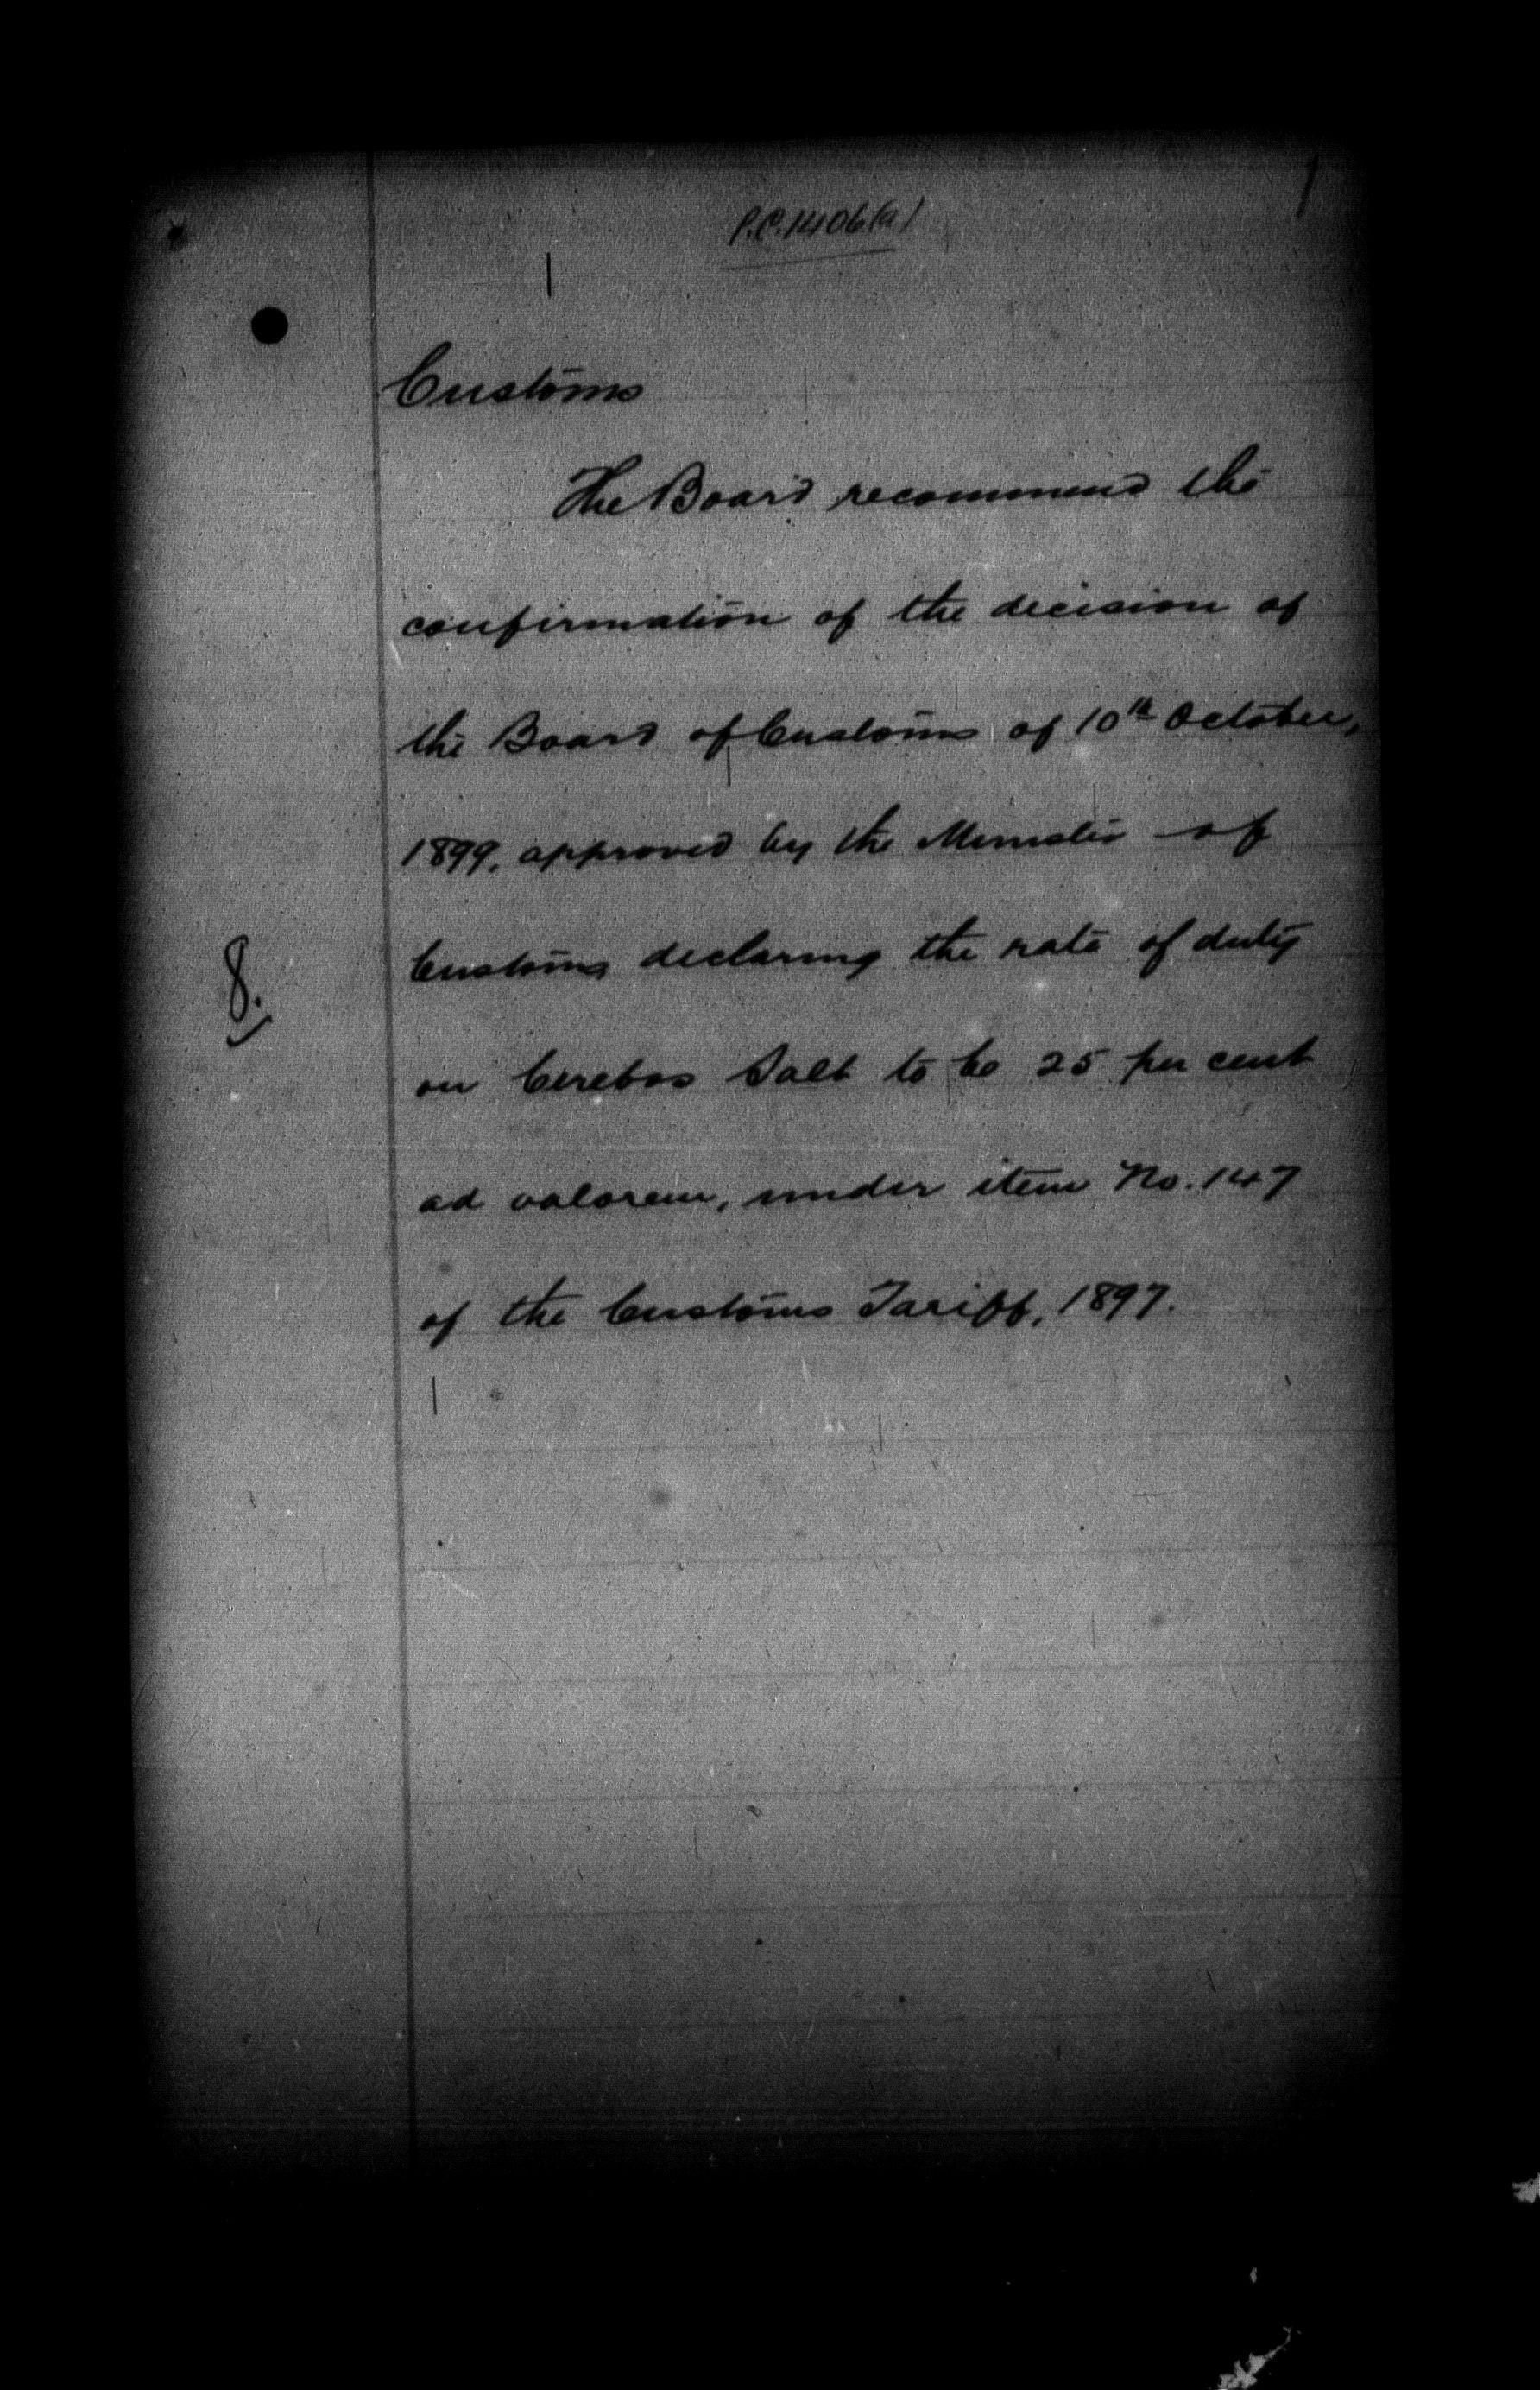 P.C. 1406(a)
Customs
The Board recommend the
confirmation of the decision of
the Board of Customs of 10th October,
1899, approved by the Minister of
Customs declaring the rate of duty
8.
on Cerebos Salt to be 25 per cent
ad valorem, under item No. 147
of the Customs Tariff, 1897.